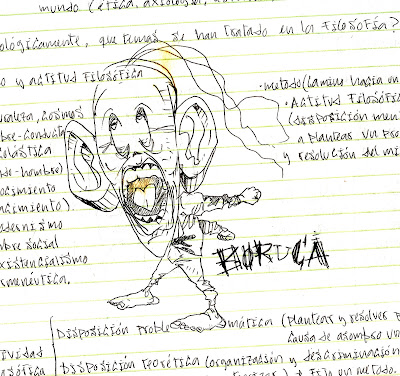 mundo (ética, axiología,
ológicamente, que temas se han tratado en la Filosofía?
o y actitud Filosófica
uraleza, cosmos
bre-conducta
olástica
de-hombre)
ocimiento
acimiento)
odernismo
mbre social
xistencialismo
rmenéutica.
• metodo (camino hacia un
• Actitud Filosófi
(disposición men
a plantear un pro
y resolución del mi
BORUCA
Disposición proble mática (plantear y resolver p
causa de asombro un
tividad
osófica
Disposición teorética (organización y descriminación
+ Fijo un metodo.